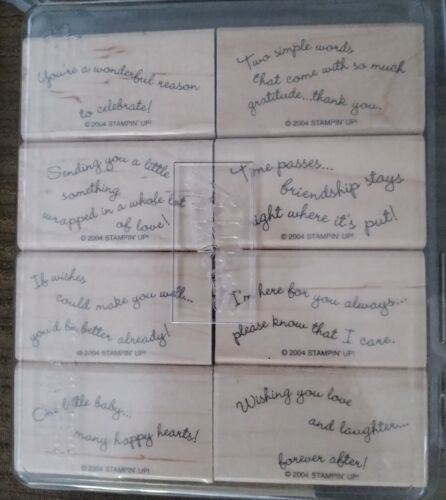 You're a wonderful reason
to celebrate!
© 2004 STAMPIN' UP!
Two simple words
that come with so much
gratitude...thank you.
© 2004 STAMPIN' UP!
Sending you a little
something
wrapped in a whole lot
of love!
© 2004 STAMPIN' UP!
Time passes...
friendship stays
right where it's put!
© 2004 STAMPIN' UP!
If wishes
could make you well...
you'd be better already!
© 2004 STAMPIN' UP!
I'm here for you always...
please know that I care.
© 2004 STAMPIN' UP!
One little baby...
many happy hearts!
© 2004 STAMPIN' UP!
Wishing you love
and laughter...
forever after!
© 2004 STAMPIN' UP!